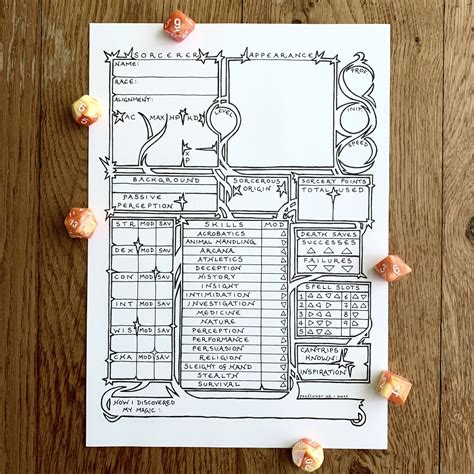 SORCERER
NAME:
RACE:
ALIGNMENT:
AC MAX HP HD
XP
LEVEL
APPEARANCE
PROF
INIT
SPEED
BACKGROUND
PASSIVE
PERCEPTION
SORCEROUS
ORIGIN
SORCERY POINTS
TOTAL USED
STR MOD SAV
DEX MOD SAV
CON MOD SAV
INT MOD SAV
WIS MOD SAV
CHA MOD SAV
SKILLS MOD
ACROBATICS
ANIMAL HANDLING
ARCANA
ATHLETICS
DECEPTION
HISTORY
INSIGHT
INTIMIDATION
INVESTIGATION
MEDICINE
NATURE
PERCEPTION
PERFORMANCE
PERSUASION
RELIGION
SLEIGHT OF HAND
STEALTH
SURVIVAL
DEATH SAVES
SUCCESSES
FAILURES
SPELL SLOTS
1 6
2 7
3 8
4 9
5
CANTRIPS
KNOWN
INSPIRATION
HOW I DISCOVERED
MY MAGIC: